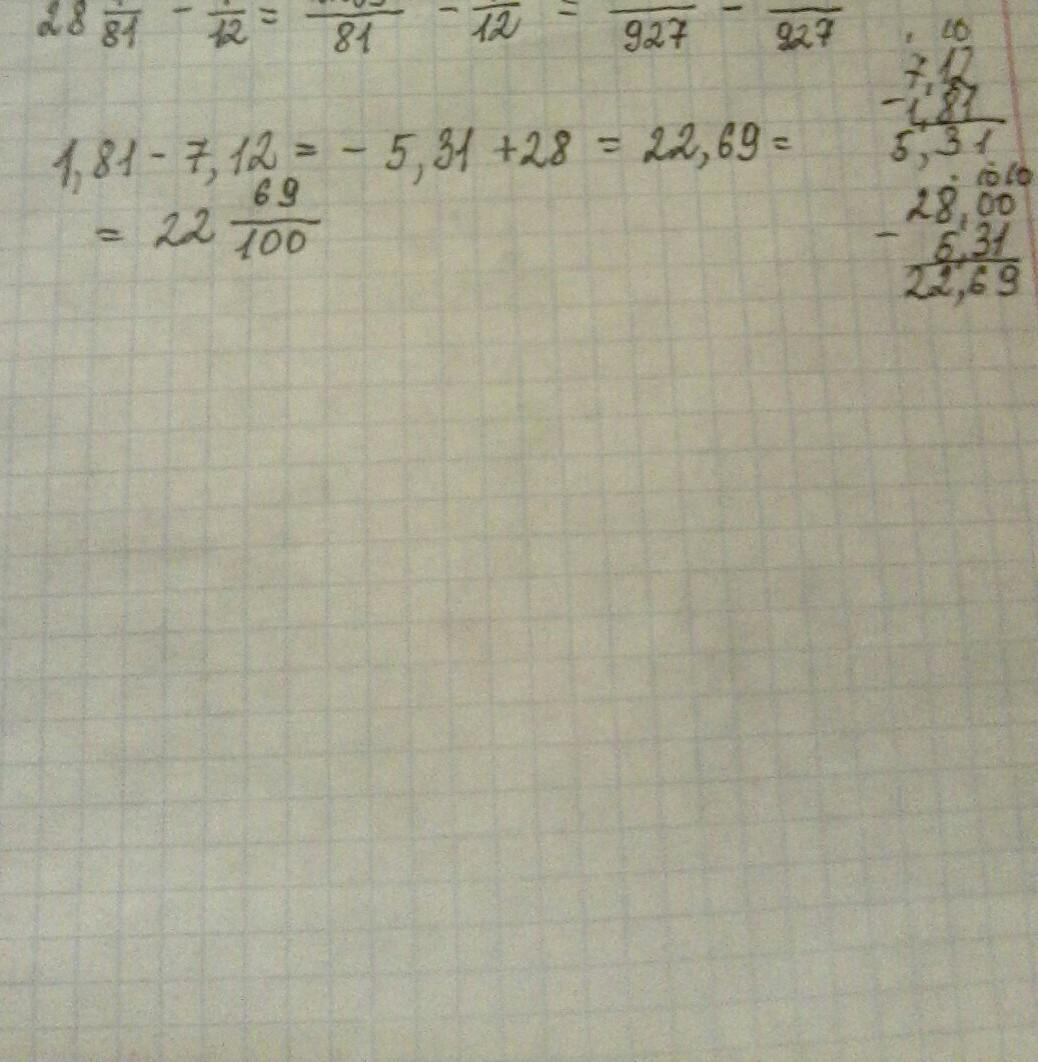 28 /81 - /12 = /81 - /12 = /927 - /927
1,81 - 7,12 = - 5,31 + 28 = 22,69 =
= 22 69/100
10
7,12
- 1,81
5,31
10 10
28,00
- 5,31
22,69